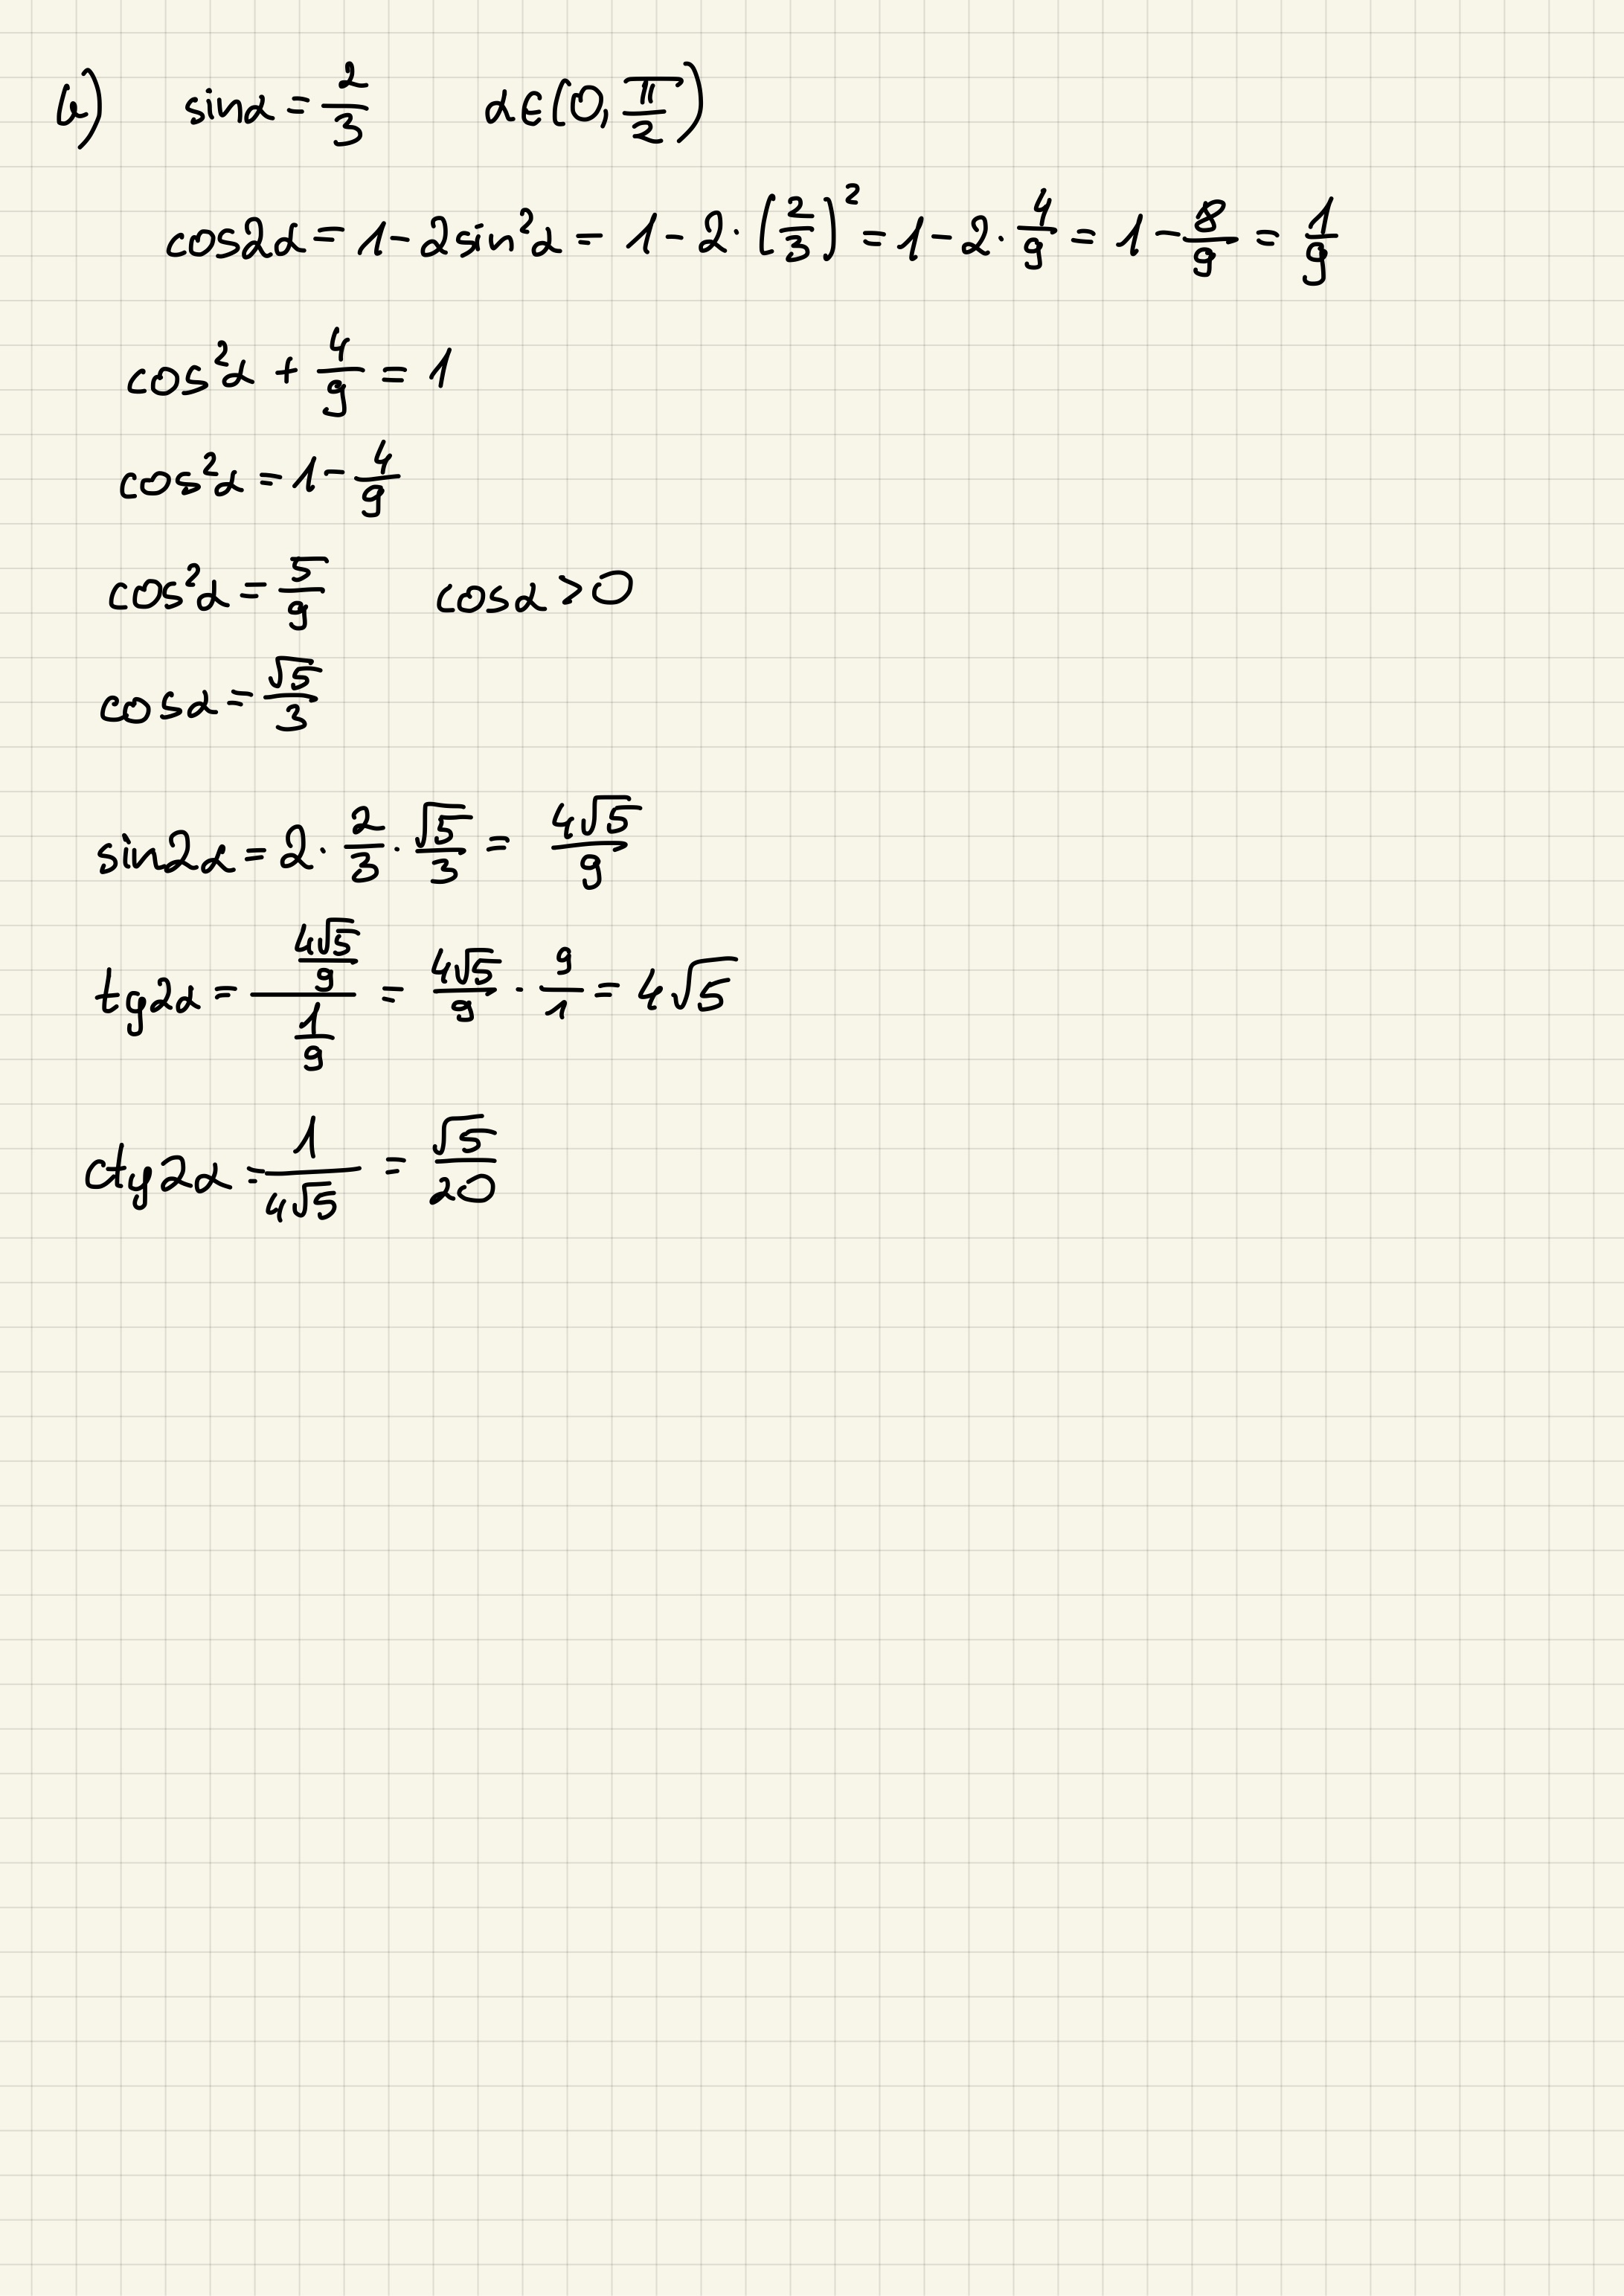 a) sinα = 2/3 α∈(0, π/2)
cos2α = 1 - 2sin²α = 1 - 2·(2/3)² = 1 - 2·4/9 = 1 - 8/9 = 1/9
cos²α + 4/9 = 1
cos²α = 1 - 4/9
cos²α = 5/9 cosα > 0
cosα = √5/3
sin2α = 2·2/3·√5/3 = 4√5/9
tg2α = (4√5/9)/(1/9) = 4√5/9 · 9/1 = 4√5
ctg2α = 1/(4√5) = √5/20